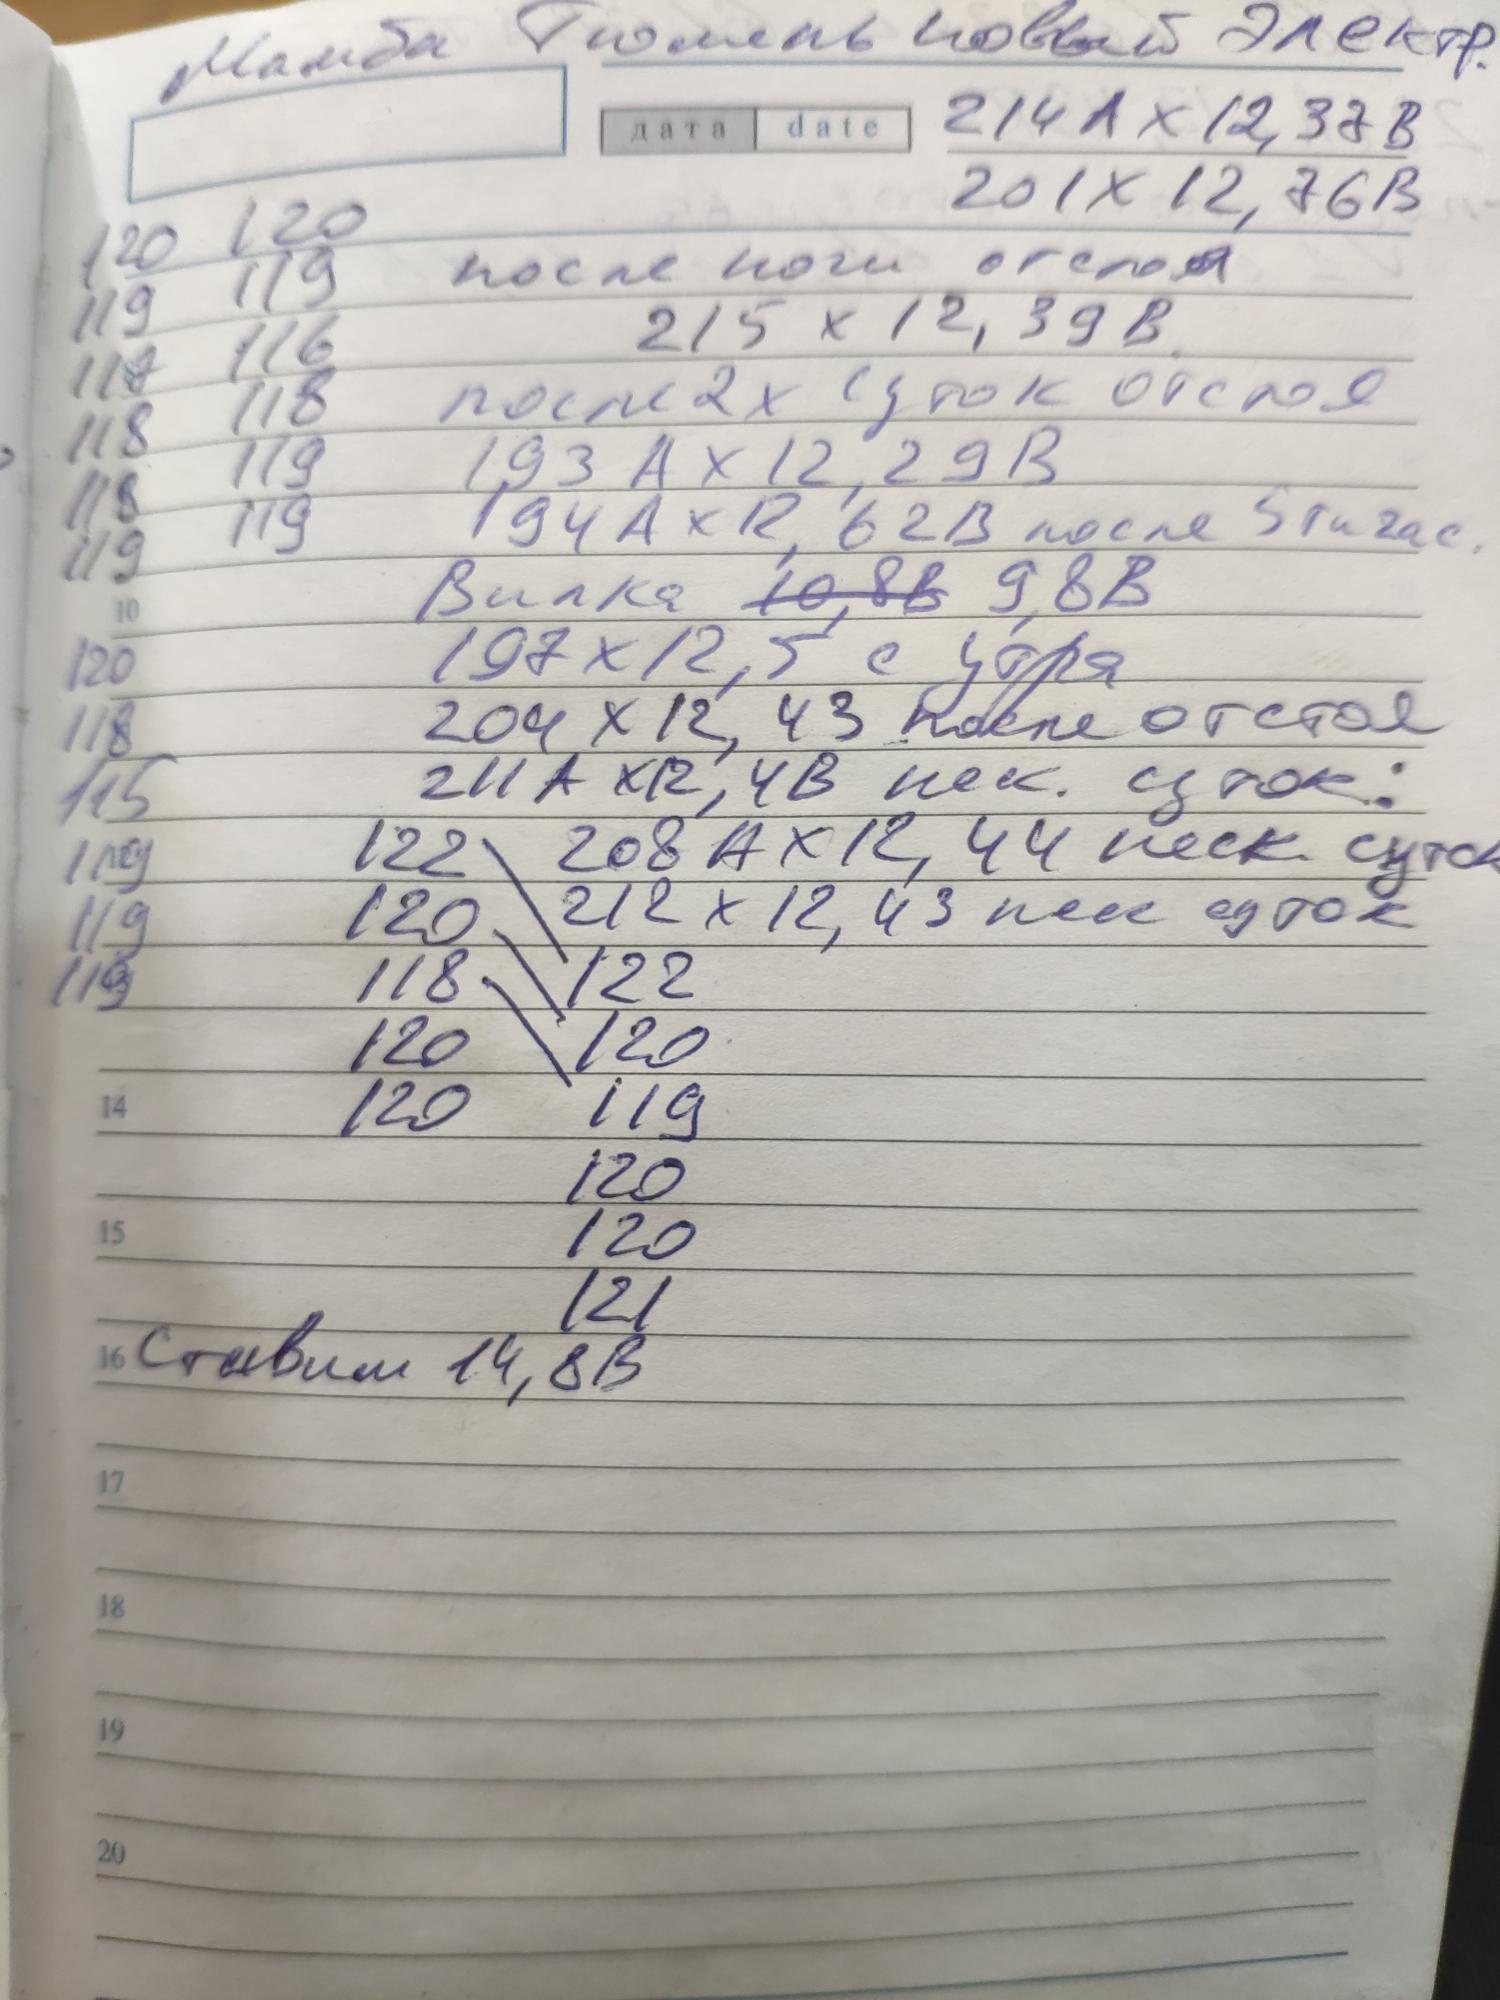 Мамба Тюмень новый электр.
дата date
214А х 12,37В
201 х 12,76В
120 120
119 119 после ночи отстоя
116 215 х 12,39В
118 118 после 2х суток отстоя
118 119 193А х 12,29В
119 119 194А х 12,62В после 5тичас.
10 Вилка 10,8В 9,8В
120 197 х 12,5 с утра
118 204 х 12,43 после отстоя
115 211А х 12,4В неск. суток:
119 122 208А х 12,44 неск. суток
119 120 212 х 12,43 неск суток
119 118 122
120 120
14 120 119
120
15 120
121
16 Ставим 14,8В
17
18
19
20